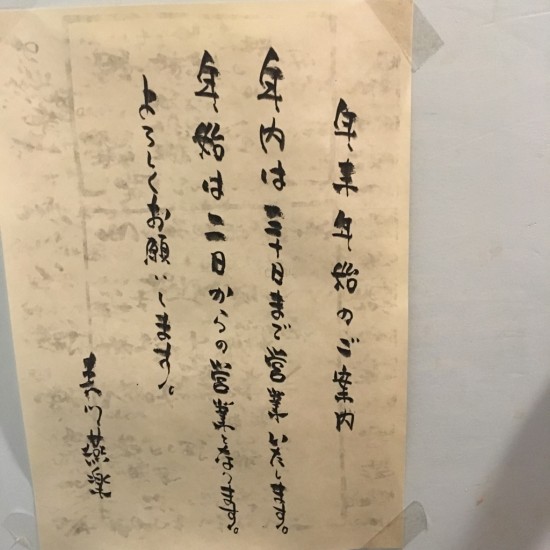 年末年始のご案内
年内は三十日まで営業致します。
年始は二日からの営業となります。
よろしくお願いします。